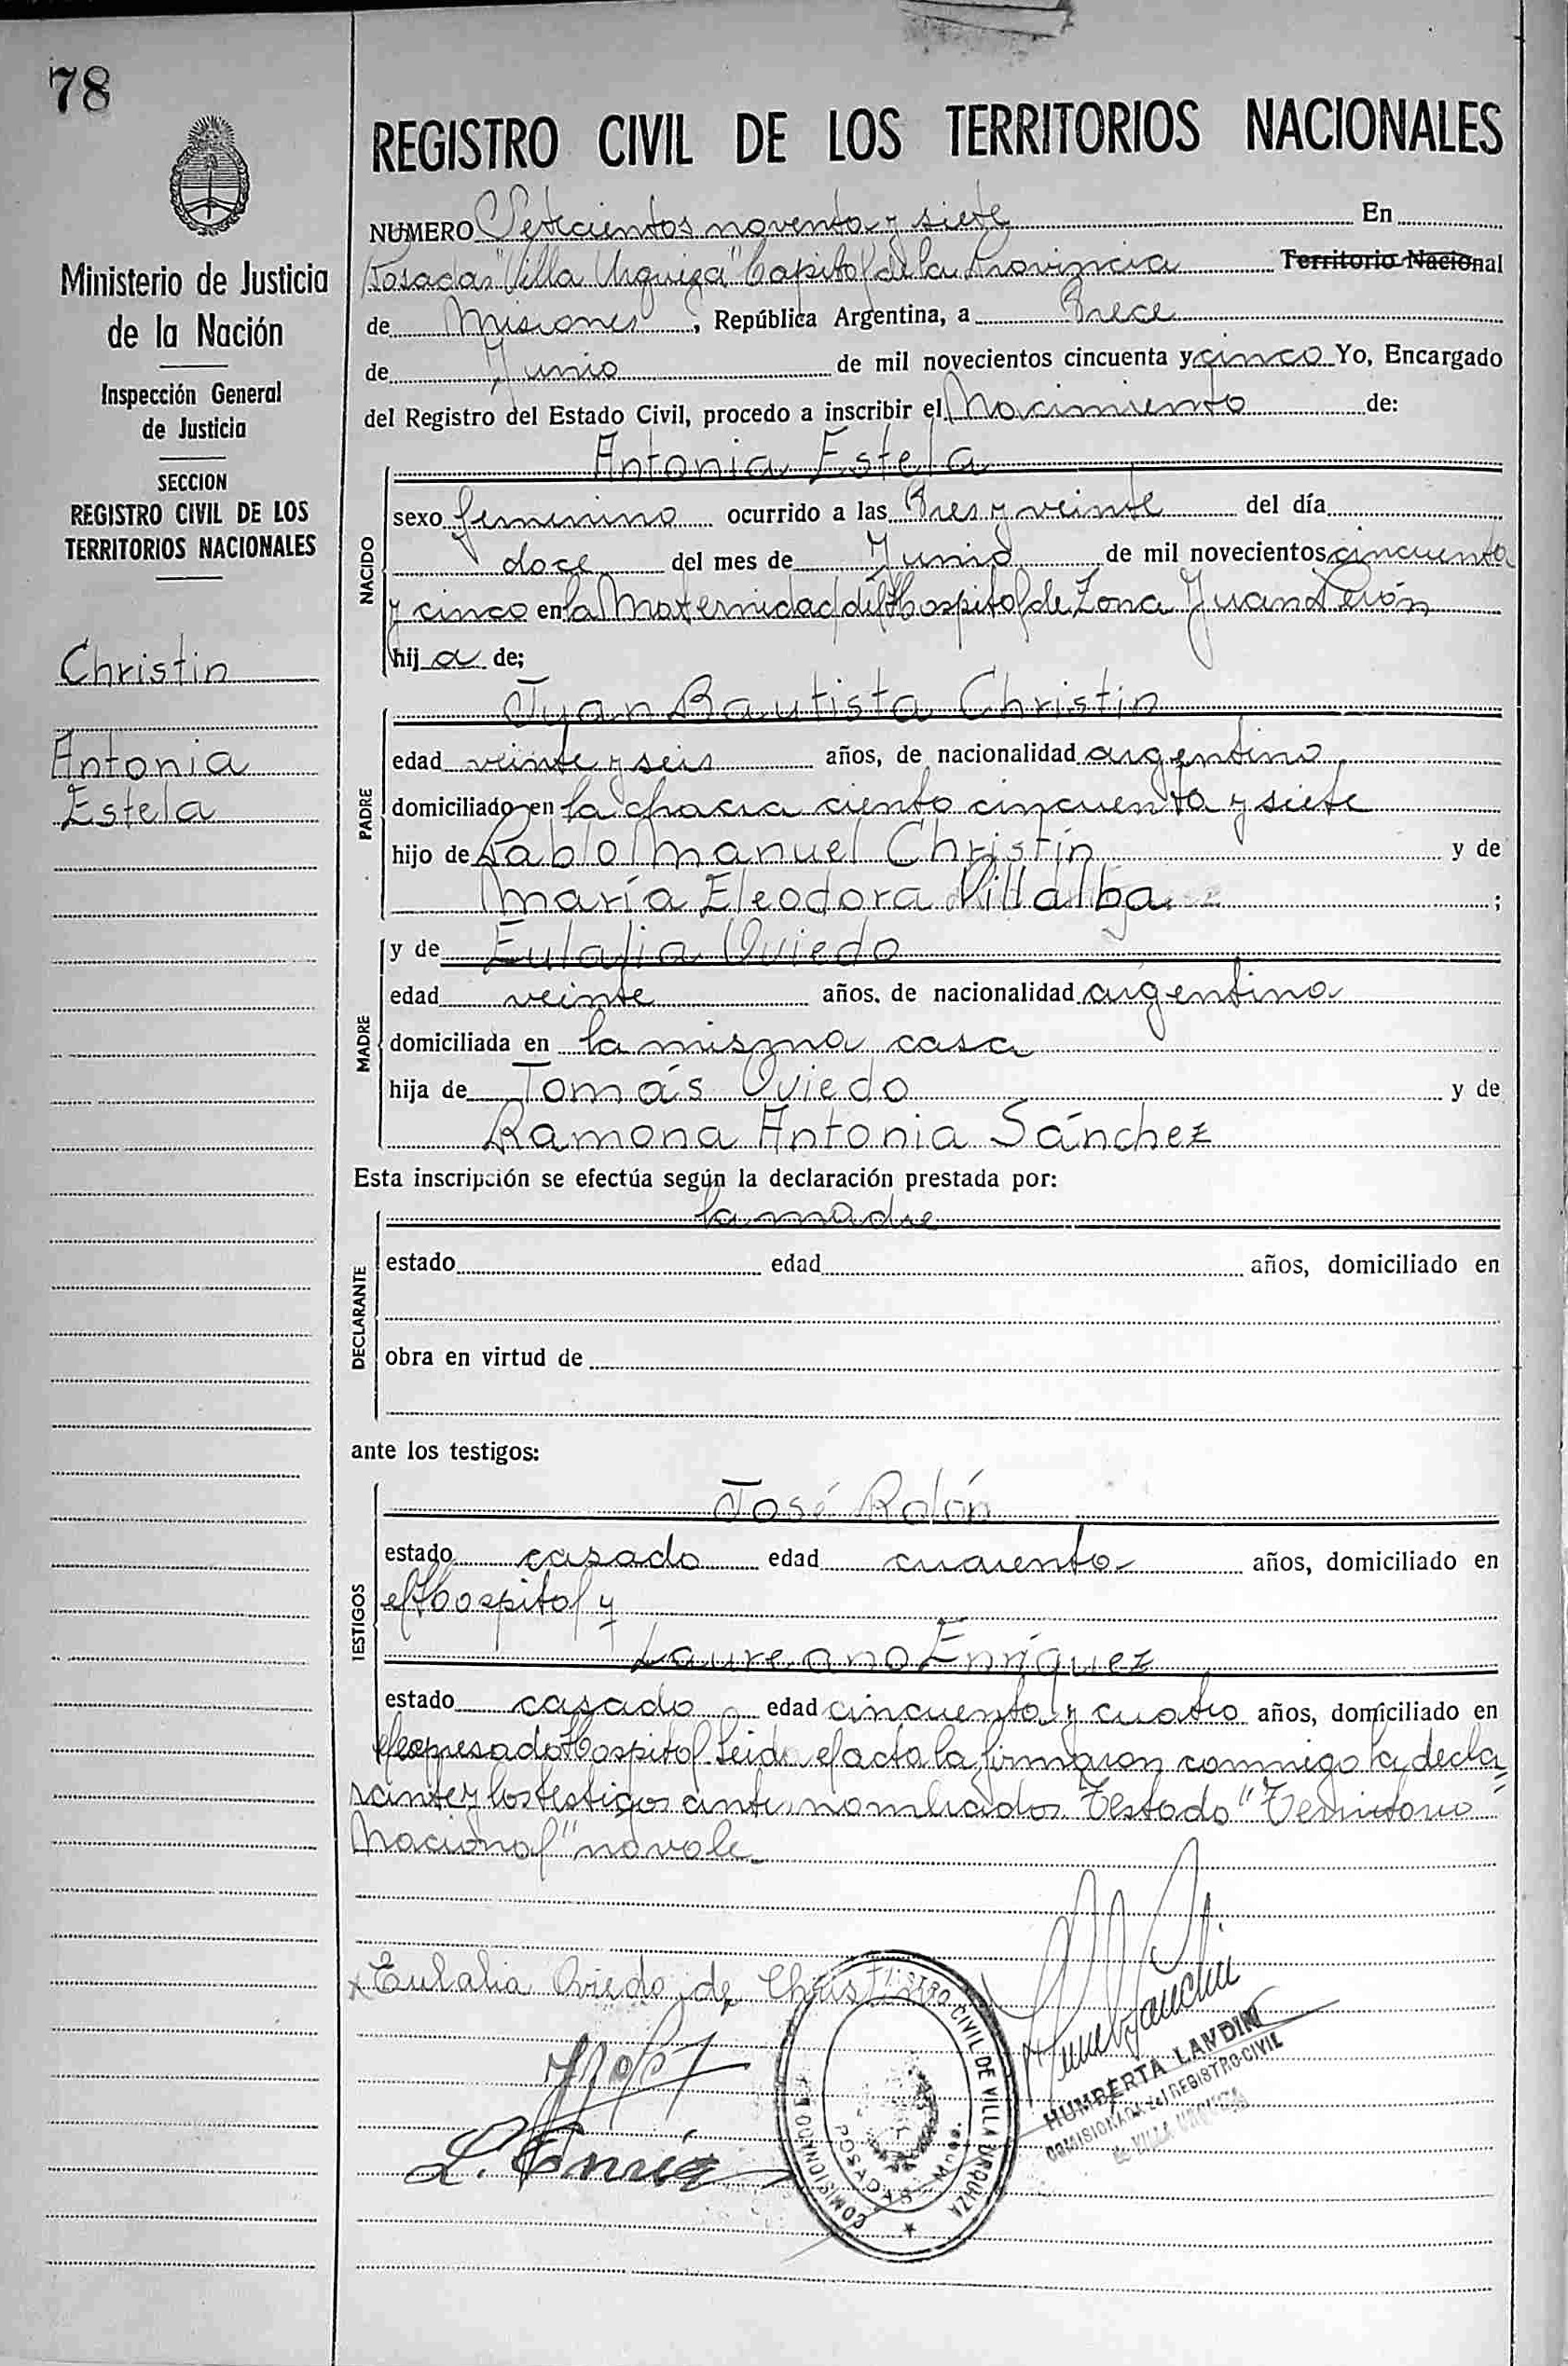 78
Ministerio de Justicia
de la Nación
Inspección General
de Justicia
SECCION
REGISTRO CIVIL DE LOS
TERRITORIOS NACIONALES
Christin
Antonia
Estela
REGISTRO CIVIL DE LOS TERRITORIOS NACIONALES
NUMERO Setecientos noventa y siete En
Posadas "Villa Urquiza" Capital de la Provincia Territorio Nacional
de Misiones, República Argentina, a Trece
de Junio de mil novecientos cincuenta y cinco Yo, Encargado
del Registro del Estado Civil, procedo a inscribir el Nacimiento de:
NACIDO
Antonia Estela
sexo femenino ocurrido a las Tres y veinte del día
doce del mes de Junio de mil novecientos cincuenta
y cinco en la Maternidad del Hospital de Zona Juan Perón
hija de;
PADRE
Juan Bautista Christin
edad veinte y seis años, de nacionalidad argentino
domiciliado en la chacra ciento cincuenta y siete
hijo de Pablo Manuel Christin y de
María Eleodora Villalba ;
MADRE
y de Eulalia Oviedo
edad veinte años. de nacionalidad argentina
domiciliada en la misma casa
hija de Tomás Oviedo y de
Ramona Antonia Sánchez
Esta inscripción se efectúa según la declaración prestada por:
DECLARANTE
la madre
estado edad años, domiciliado en
obra en virtud de
ante los testigos:
TESTIGOS
José Rolón
estado casado edad cuarenta años, domiciliado en
el Hospital y
Laureano Enriquez
estado casado edad cincuenta y cuatro años, domiciliado en
el expresado Hospital. Leida el acta la firmaron conmigo la decla
rante y los testigos antes nombrados. Testado "Territorio
Nacional" no vale.
Eulalia Oviedo de Christin
L. Enriq
REGISTRO CIVIL DE VILLA URQUIZA
COMISIONADO
POSADAS - Mnes.
HUMBERTA LANDINI
COMISIONADA del REGISTRO CIVIL
de VILLA URQUIZA